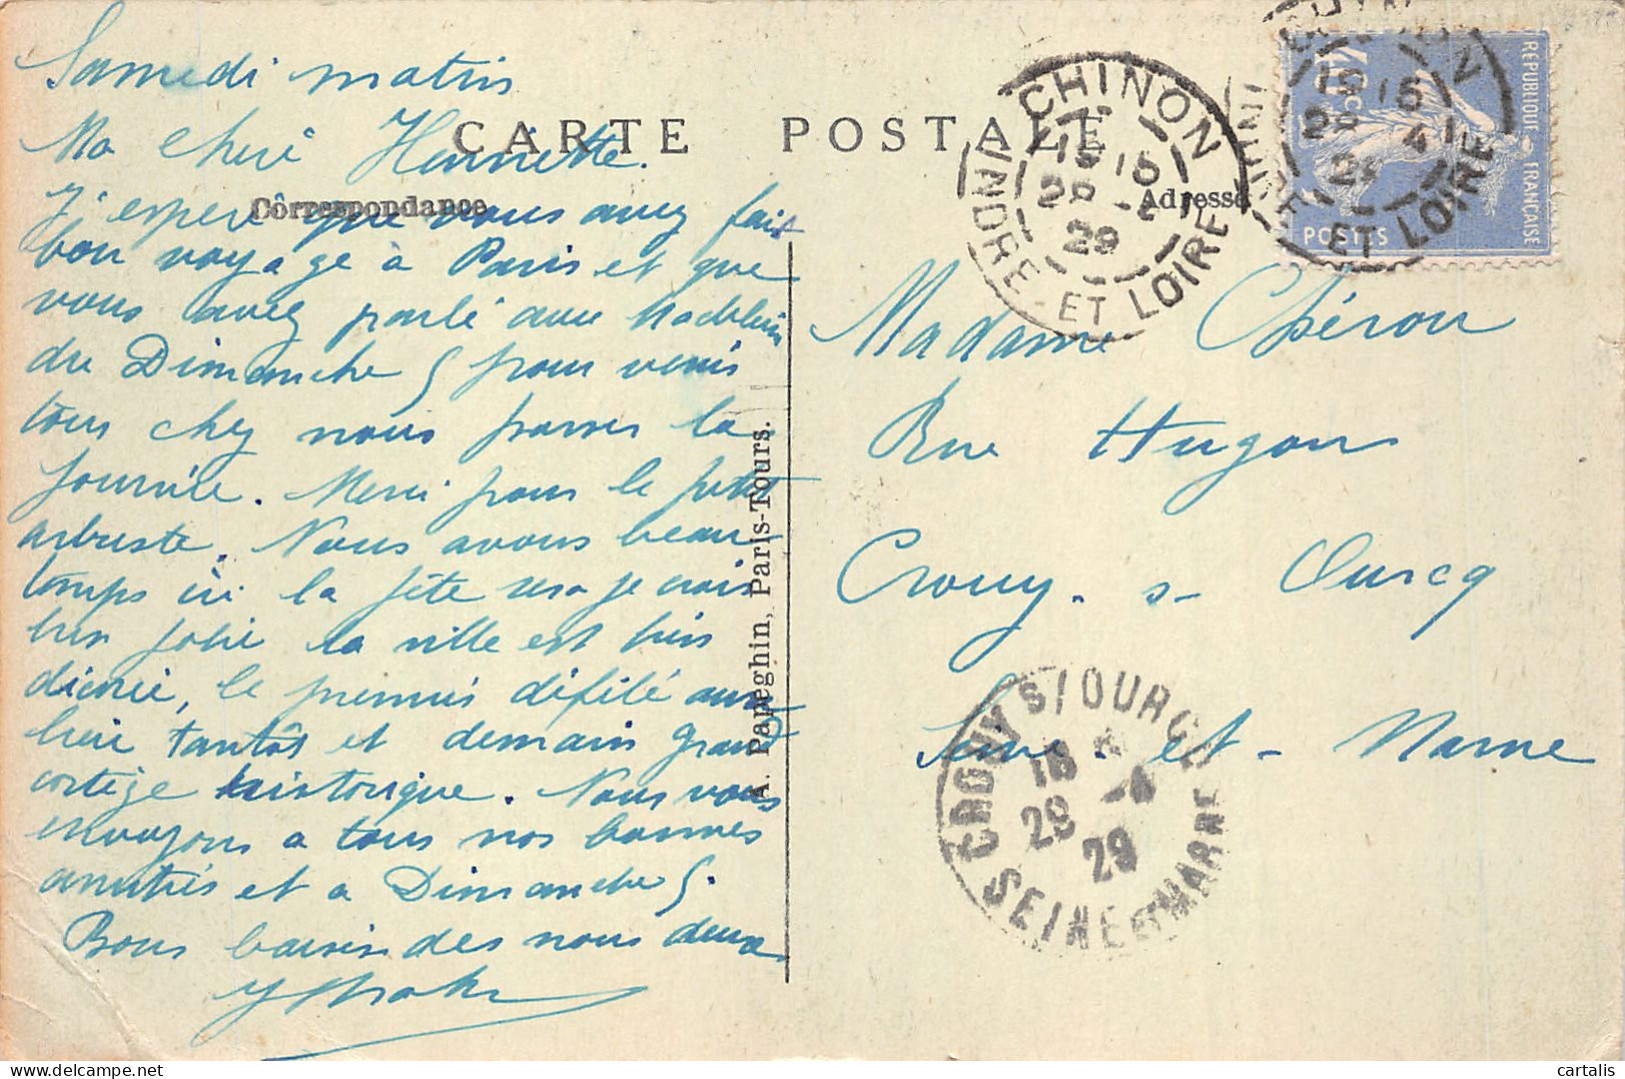 CARTE POSTALE
Correspondance
Adresse
Samedi matin
Ma cheri Henriette.
J'espere que vous avez fait
bon voyage à Paris et que
vous avez parlé avec Madeleine
du Dimanche 5 pour venir
tous chez nous passer la
journée. Merci pour le petit
arbuste. Nous avons beau
temps ici la fête sera je crois
bien jolie la ville est bien
décoré, le premier défilé aura
lieu tantôt et demain grand
cortège historique. Nous vous
envoyons a tous nos bonnes
amitiés et a Dimanche 5.
Bons baisers des nous deux
A. Papeghin, Paris-Tours.
Madame Chéron
Rue Hugon
Crouy - s - Ourcq
Seine - et - Marne
CHINON
15 15
28 -4
29
INDRE-ET-LOIRE
CHINON
15 15
28 4
29
INDRE ET LOIRE
REPUBLIQUE FRANÇAISE
40 c
POSTES
CROUY S/OURCQ
18
29 -4
29
SEINE ET MARNE
cartalis